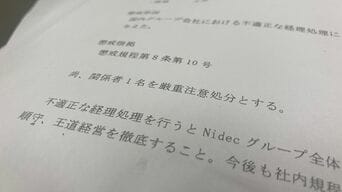 国内グループ会社における不適正な経理処理に
懲戒根拠
懲戒規程第8条第10号
尚、関係者1名を厳重注意処分とする。
不適正な経理処理を行うとNidecグループ全体
順守、王道経営を徹底すること。今後も社内規程